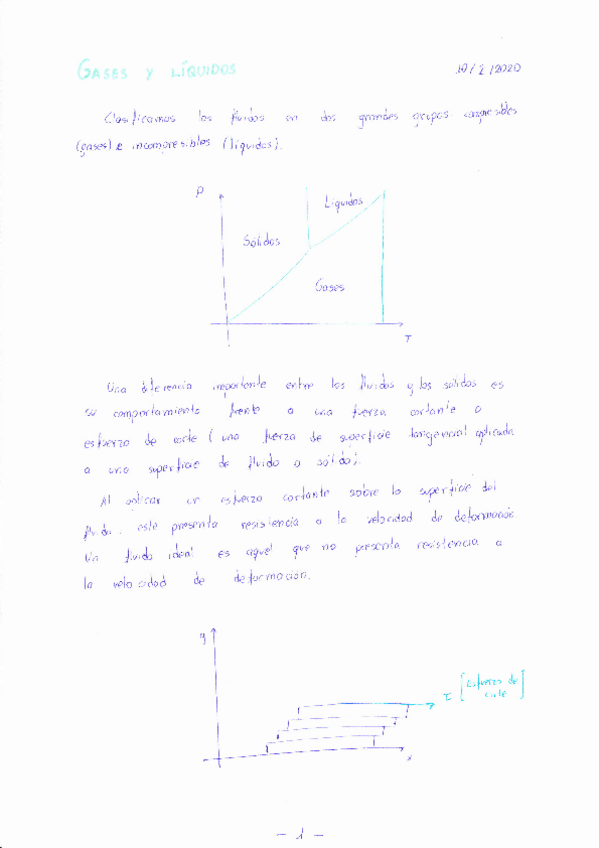 GASES Y LÍQUIDOS
10/2/2020
Clasificamos los fluidos en dos grandes grupos compresibles
(gases) e incompresibles (líquidos).
P
Líquidos
Sólidos
Gases
T
Una diferencia importante entre los fluidos y los sólidos es
su comportamiento frente a una fuerza cortante o
esfuerzo de corte (una fuerza de superficie tangencial aplicada
a una superficie de fluido o sólido).
Al aplicar un esfuerzo cortante sobre la superficie del
fluido, este presenta resistencia a la velocidad de deformación
Un fluido ideal es aquel que no presenta resistencia a
la velocidad de deformación.
y
τ [Esfuerzo de
corte]
x
- 1 -